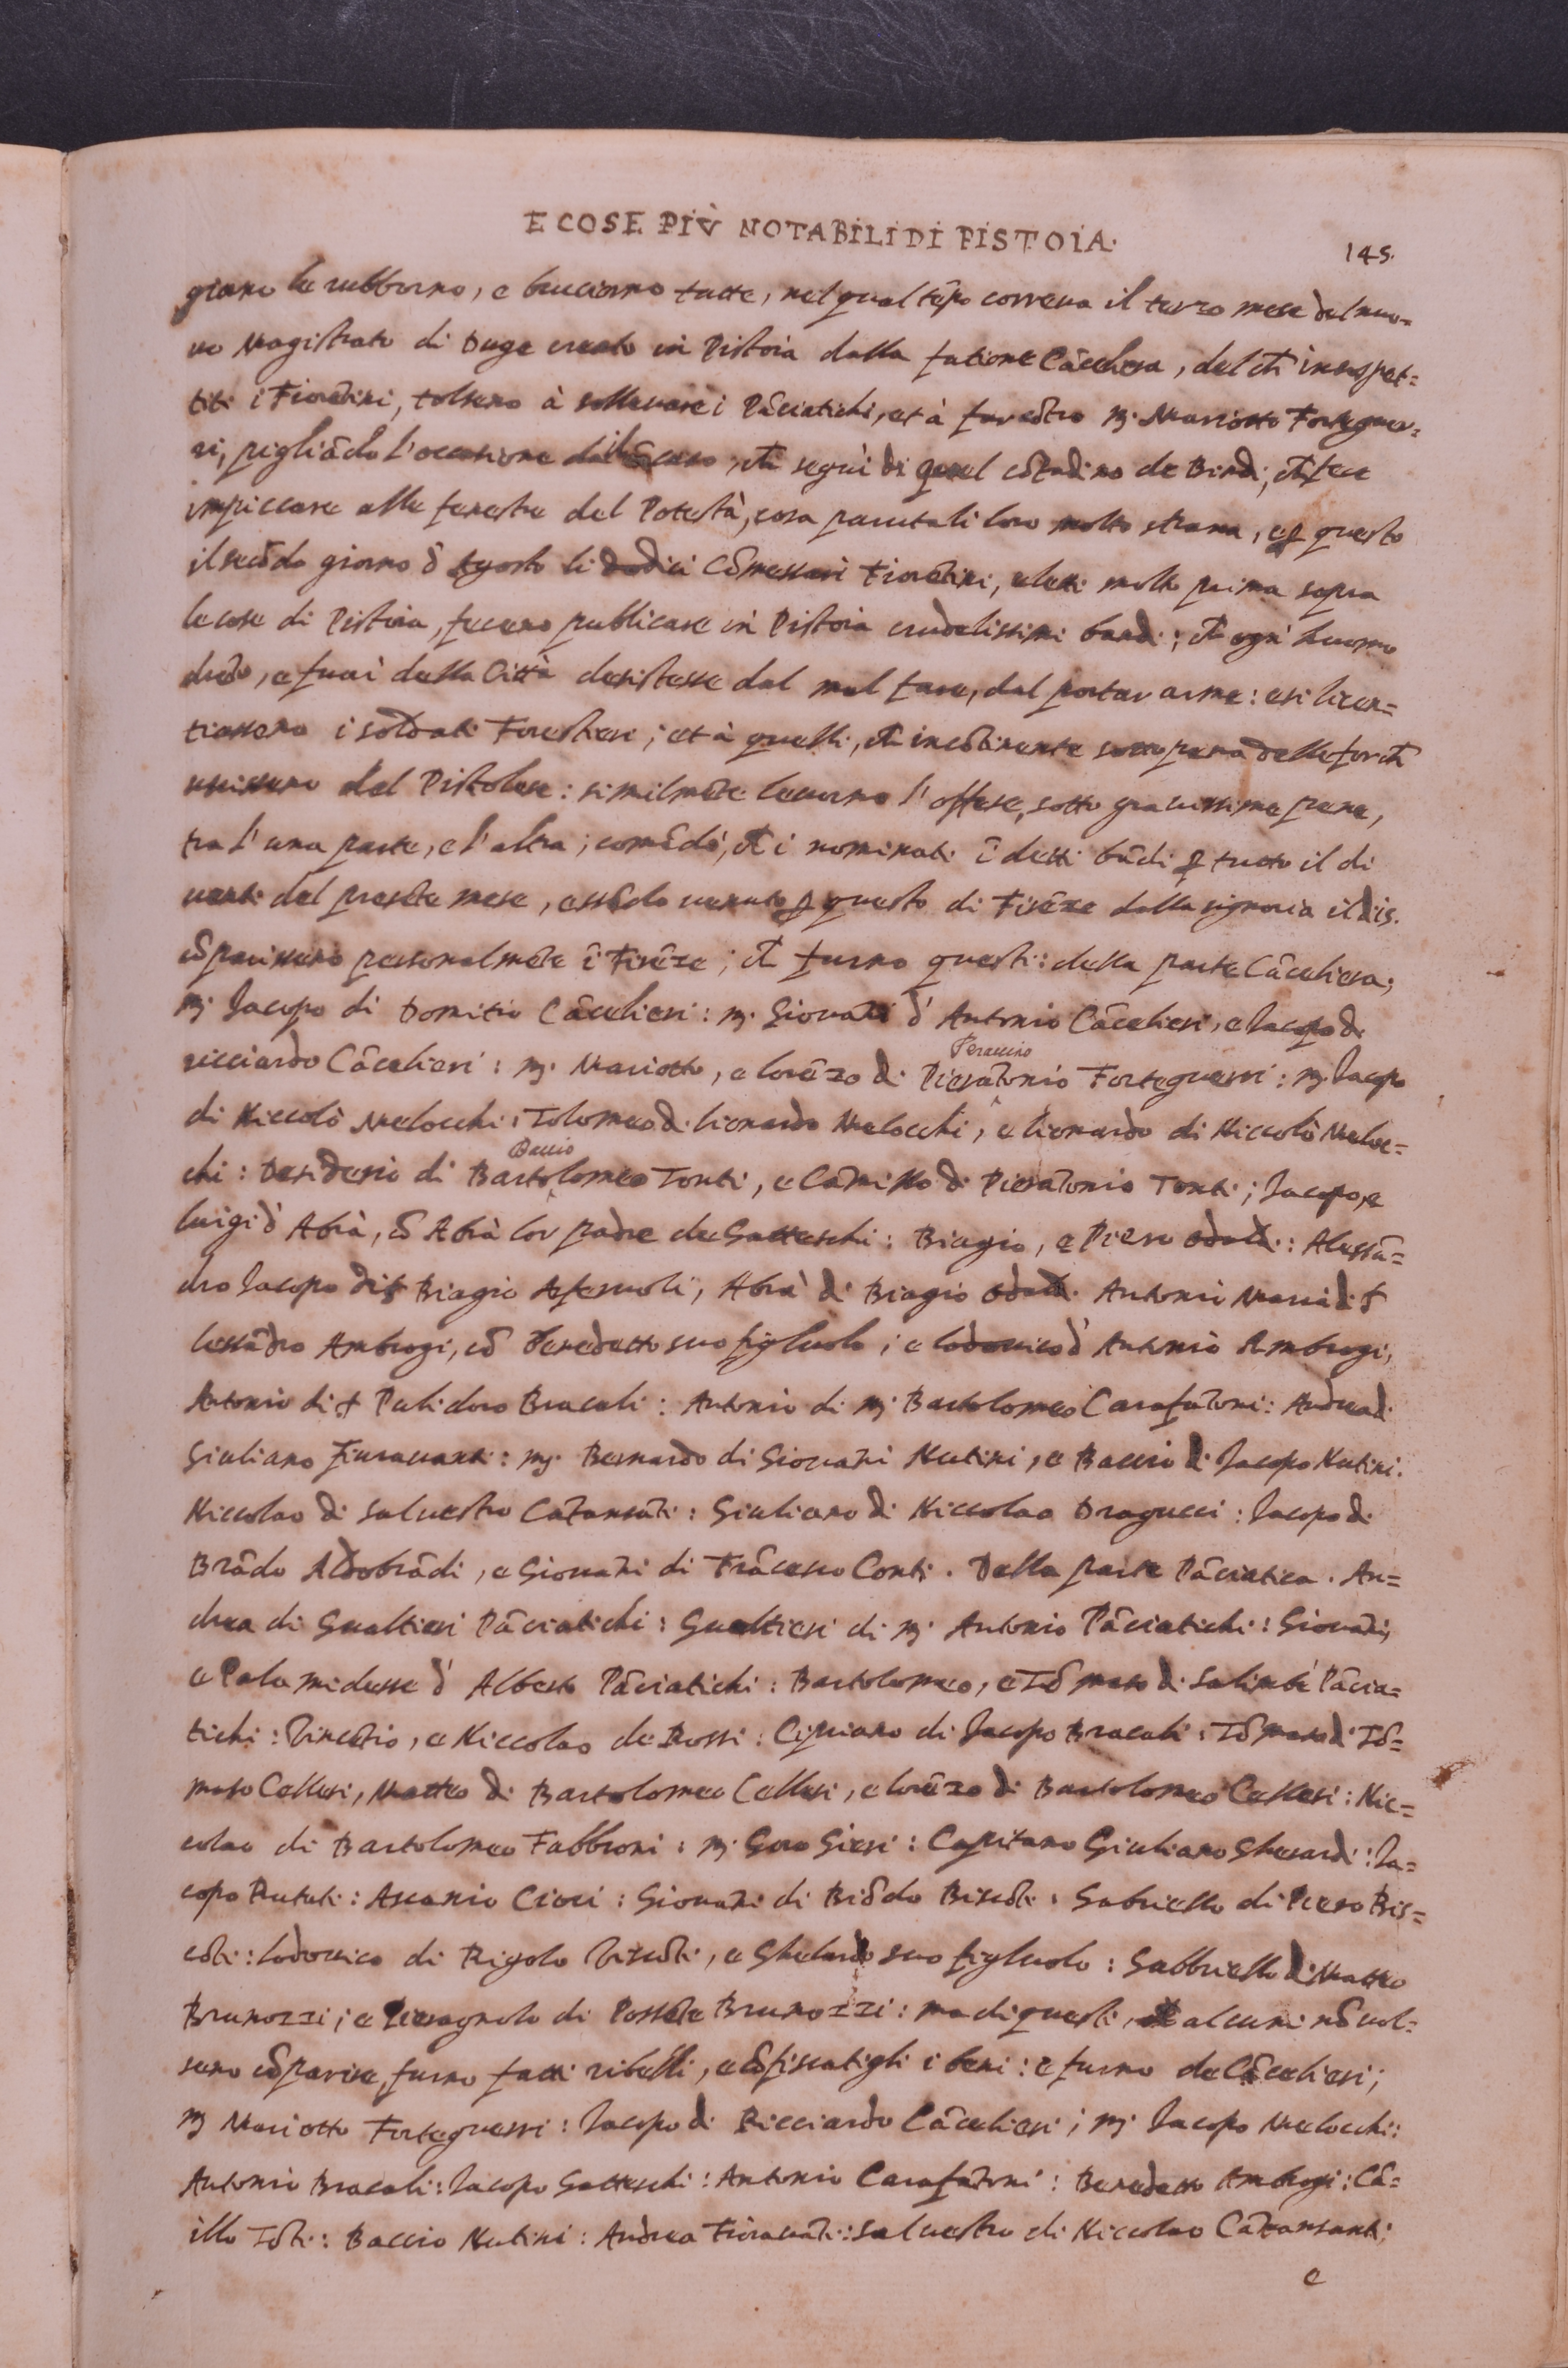 E COSE PIÙ NOTABILI DI PISTOIA.
145.
giano le rubborno, e bruciorno tutte, nel qual tẽpo correua il terzo mese del nuo=
uo Magistrato di Duge creato in Pistoia dalla fatione Cãceliera, del ch̃ insospet=
titi i Fiorẽtini, tolseno à solleuare i Pãciatichi, et à far cõtro Mͬ. Mariotto Forteguer=
ri, pigliãdo l'occasione dal caso, ch̃ seguì di quel cõtadino de Bindi, ch̃ fece
impiccare alle fenestre del Potestà, cosa paruta li loro molto strana, e ꝑ questo
il secõdo giorno d' Agosto li dodici Cõmessari Fiorẽtini, eletti molto prima sopra
le cose di Pistoia, feceno publicare in Pistoia crudelissimi bandi; ch̃ ogni huomo
drẽto, e fuori della Città desistesse dal mal fare, dal portar arme: e si licen=
tiasseno i soldati Forestieri; et à quelli, ch̃ incõtinente sotto pena delle forch̃
uscisseno del Pistolese: similmẽte leuorno l'offese, sotto grauissime pene,
tra l'una parte, e l'altra; comãdò, ch̃ i nominati ĩ detti bãdi ꝑ tutto il di
uenti del presẽte mese, essẽdo uenuto ꝑ questo di Firẽze dalla signoria il dis.
cõparisseno personalmẽte ĩ Firẽze; ch̃ furno questi: della parte Cãceliera;
Mͬ Jacopo di Domitio Cãcelieri: Mͬ. Giouãni d' Antonio Cãcelieri, e Jacopo di
ricciardo Cãcelieri: Mͬ. Mariotto, e lorẽzo di Pierãtonio Forteguerri: Mͬ. Jacopo
Peraccino
di Niccolò Melocchi: Tolomeo di lionardo Melocchi, e lionardo di Niccolò Meloc=
chi: Desiderio di Bartolomeo Tonti, e Camillo di Pierãtonio Tonti; Jacopo, e
Baccio
luigi d' Abrà, cõ Abrà lor padre de Gatteschi: Biagio, e Piero Odaldi: Alessã=
dro Jacopo di Biagio, Abrà di Biagio Odaldi. Antonio Maria di
lessãdro Ambrogi, cõ Benedetto suo figluolo; e lodouico d' Antonio Ambrogi,
Antonio di Pulidoro Bracali: Antonio di Mͬ Bartolomeo Carafãtoni: Andrea di
Giuliano Fiorauanti: Mͬ. Bernardo di Giouãni Nutini, e Baccio di Jacopo Nutini.
Niccolao di Saluestro Catansãti: Giuliano di Niccolao Dragucci: Jacopo di
Brãdo Aldobrãdi, e Giouãni di Frãcesco Conti. Della parte Pãciatica. An=
drea di Gualtieri Pãciatichi: Gualtieri di Mͬ Antonio Pãciatichi: Giouãni,
e Palamidesse d' Alberto Pãciatichi: Bartolomeo, e Tõmaso di Salimbè Pãcia=
tichi: Vincẽtio, e Niccolao de Rossi: Cipriano di Jacopo Bracali: Tõmaso di Tõ=
maso Cellesi, Matteo di Bartolomeo Cellesi, e lorẽzo di Bartolomeo Cellesi: Nic=
colao di Bartolomeo Fabbroni: Mͬ Goro Gieri: Capitano Giuliano Gherardi: Ja=
copo Rutati: Ascanio Cioci: Giouãni di Biõdo Viscõti: Gabriello di Piero Vis=
cõti: lodouico di Rigolo Viscõti, e Ghelardo suo figluolo: Gabbriello di Matteo
Brunozzi; e Pieragnolo di Possẽte Brunozzi: ma di questi, ch̃ alcuni nõ uol=
seno cõparire, furno fatti ribelli, e cõfiscatigli i beni: e furno de Cãcelieri;
Mͬ Mariotto Forteguerri: Jacopo di Ricciardo Cãcelieri; Mͬ Jacopo Melocchi:
Antonio Bracali: Jacopo Gatteschi: Antonio Carafãtoni: Benedetto Ambrogi: Cã=
illo Tõti: Baccio Nutini: Andrea Fiorauãti: Saluestro di Niccolao Catansanti:
e